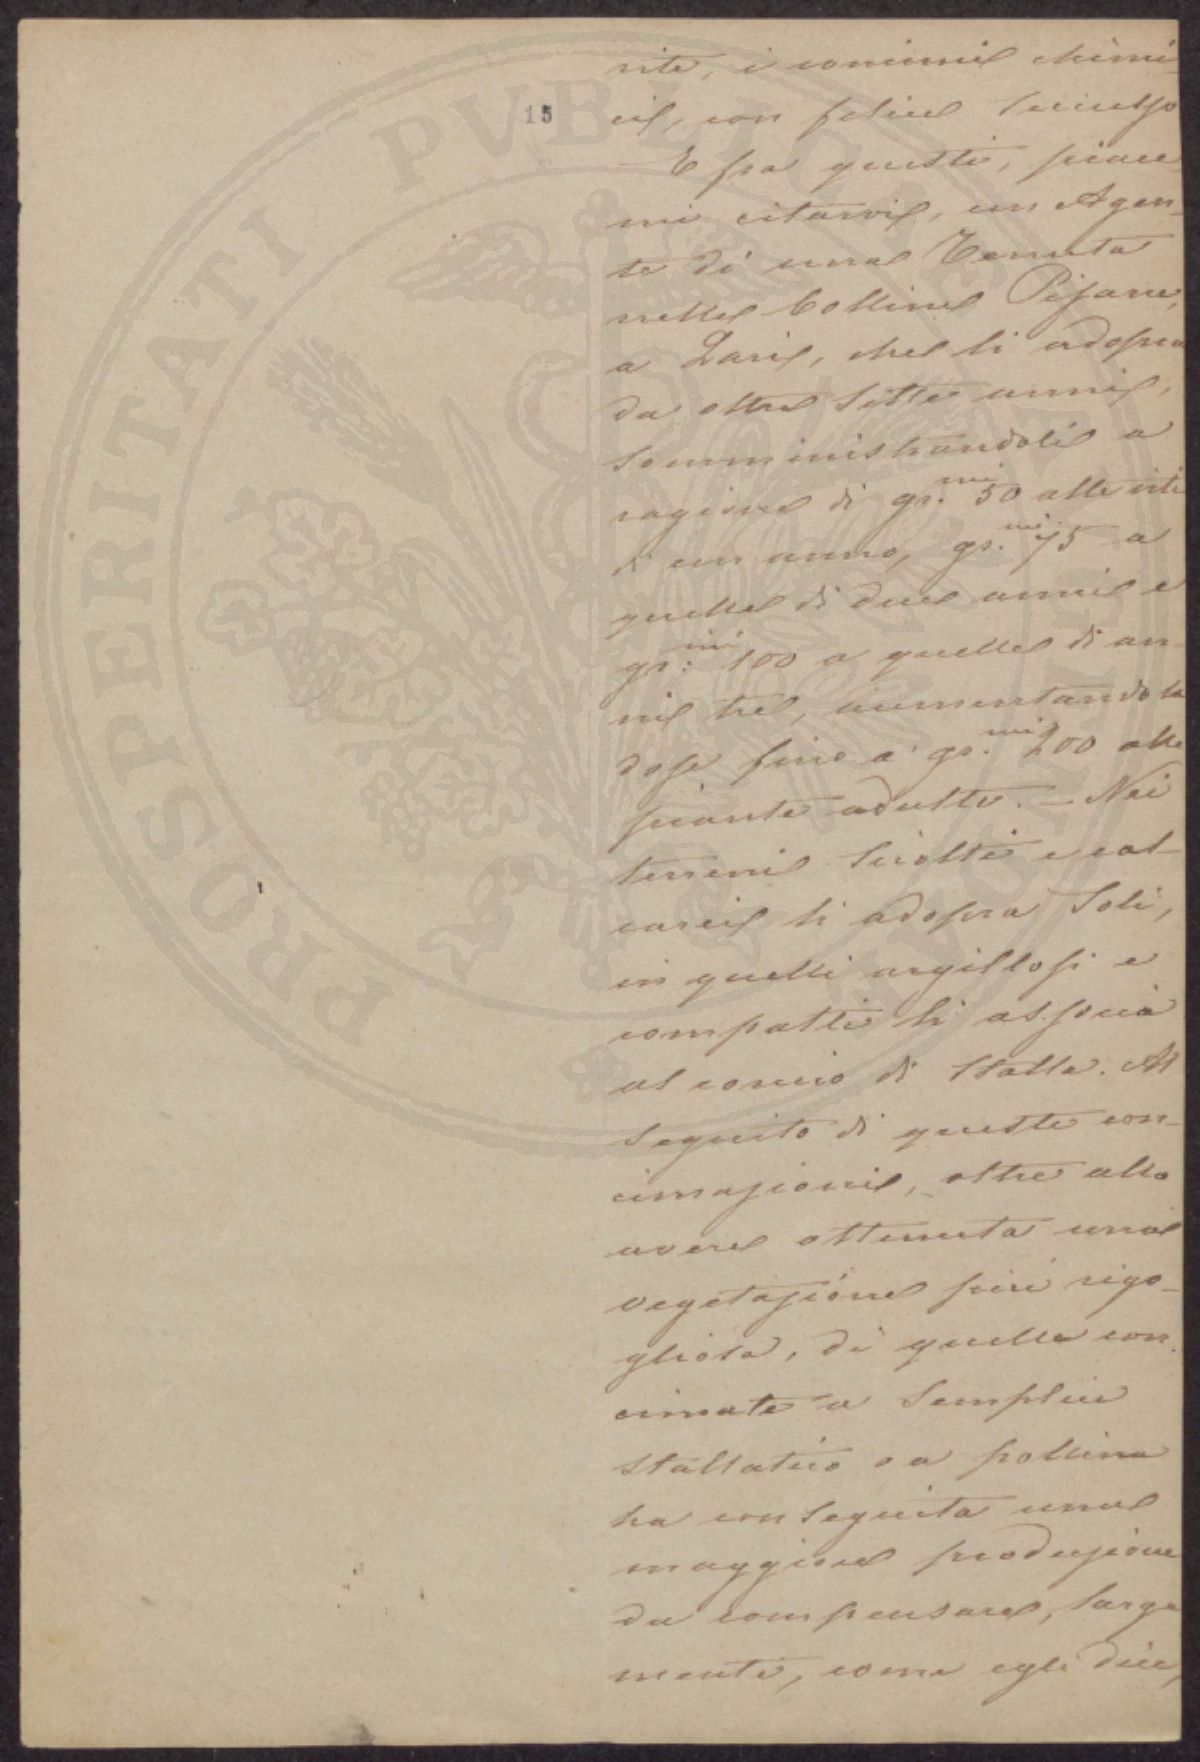 15
vite, i concimi chimi-
ci, con felice successo
E fra questi, piace
mi citarvi, un Agen-
te di una Tenuta
nelle Colline Pisane,
a Lari, che li adopra
da oltre sette anni,
somministrandoli a
ragione di gr.mi 50 alle viti
di un anno, gr.mi 75 a
quelle di due anni e
gr.mi 100 a quelle di an-
ni tre, aumentando la
dose fino a gr.mi 200 alle
piante adulte. – Nei
terreni sciolti e cal-
carei li adopra soli,
in quelli argillosi e
compatti li associa
al concio di stalla. Al
seguito di queste con-
cimazioni, oltre allo
avere ottenuta una
vegetazione più rigo-
gliosa, di quelle con-
cimate a semplice
stallatico o a pollina
ha conseguita una
maggiore produzione
da compensare, larga
mente, come egli dice,
PROSPERITATI PVBLICAE